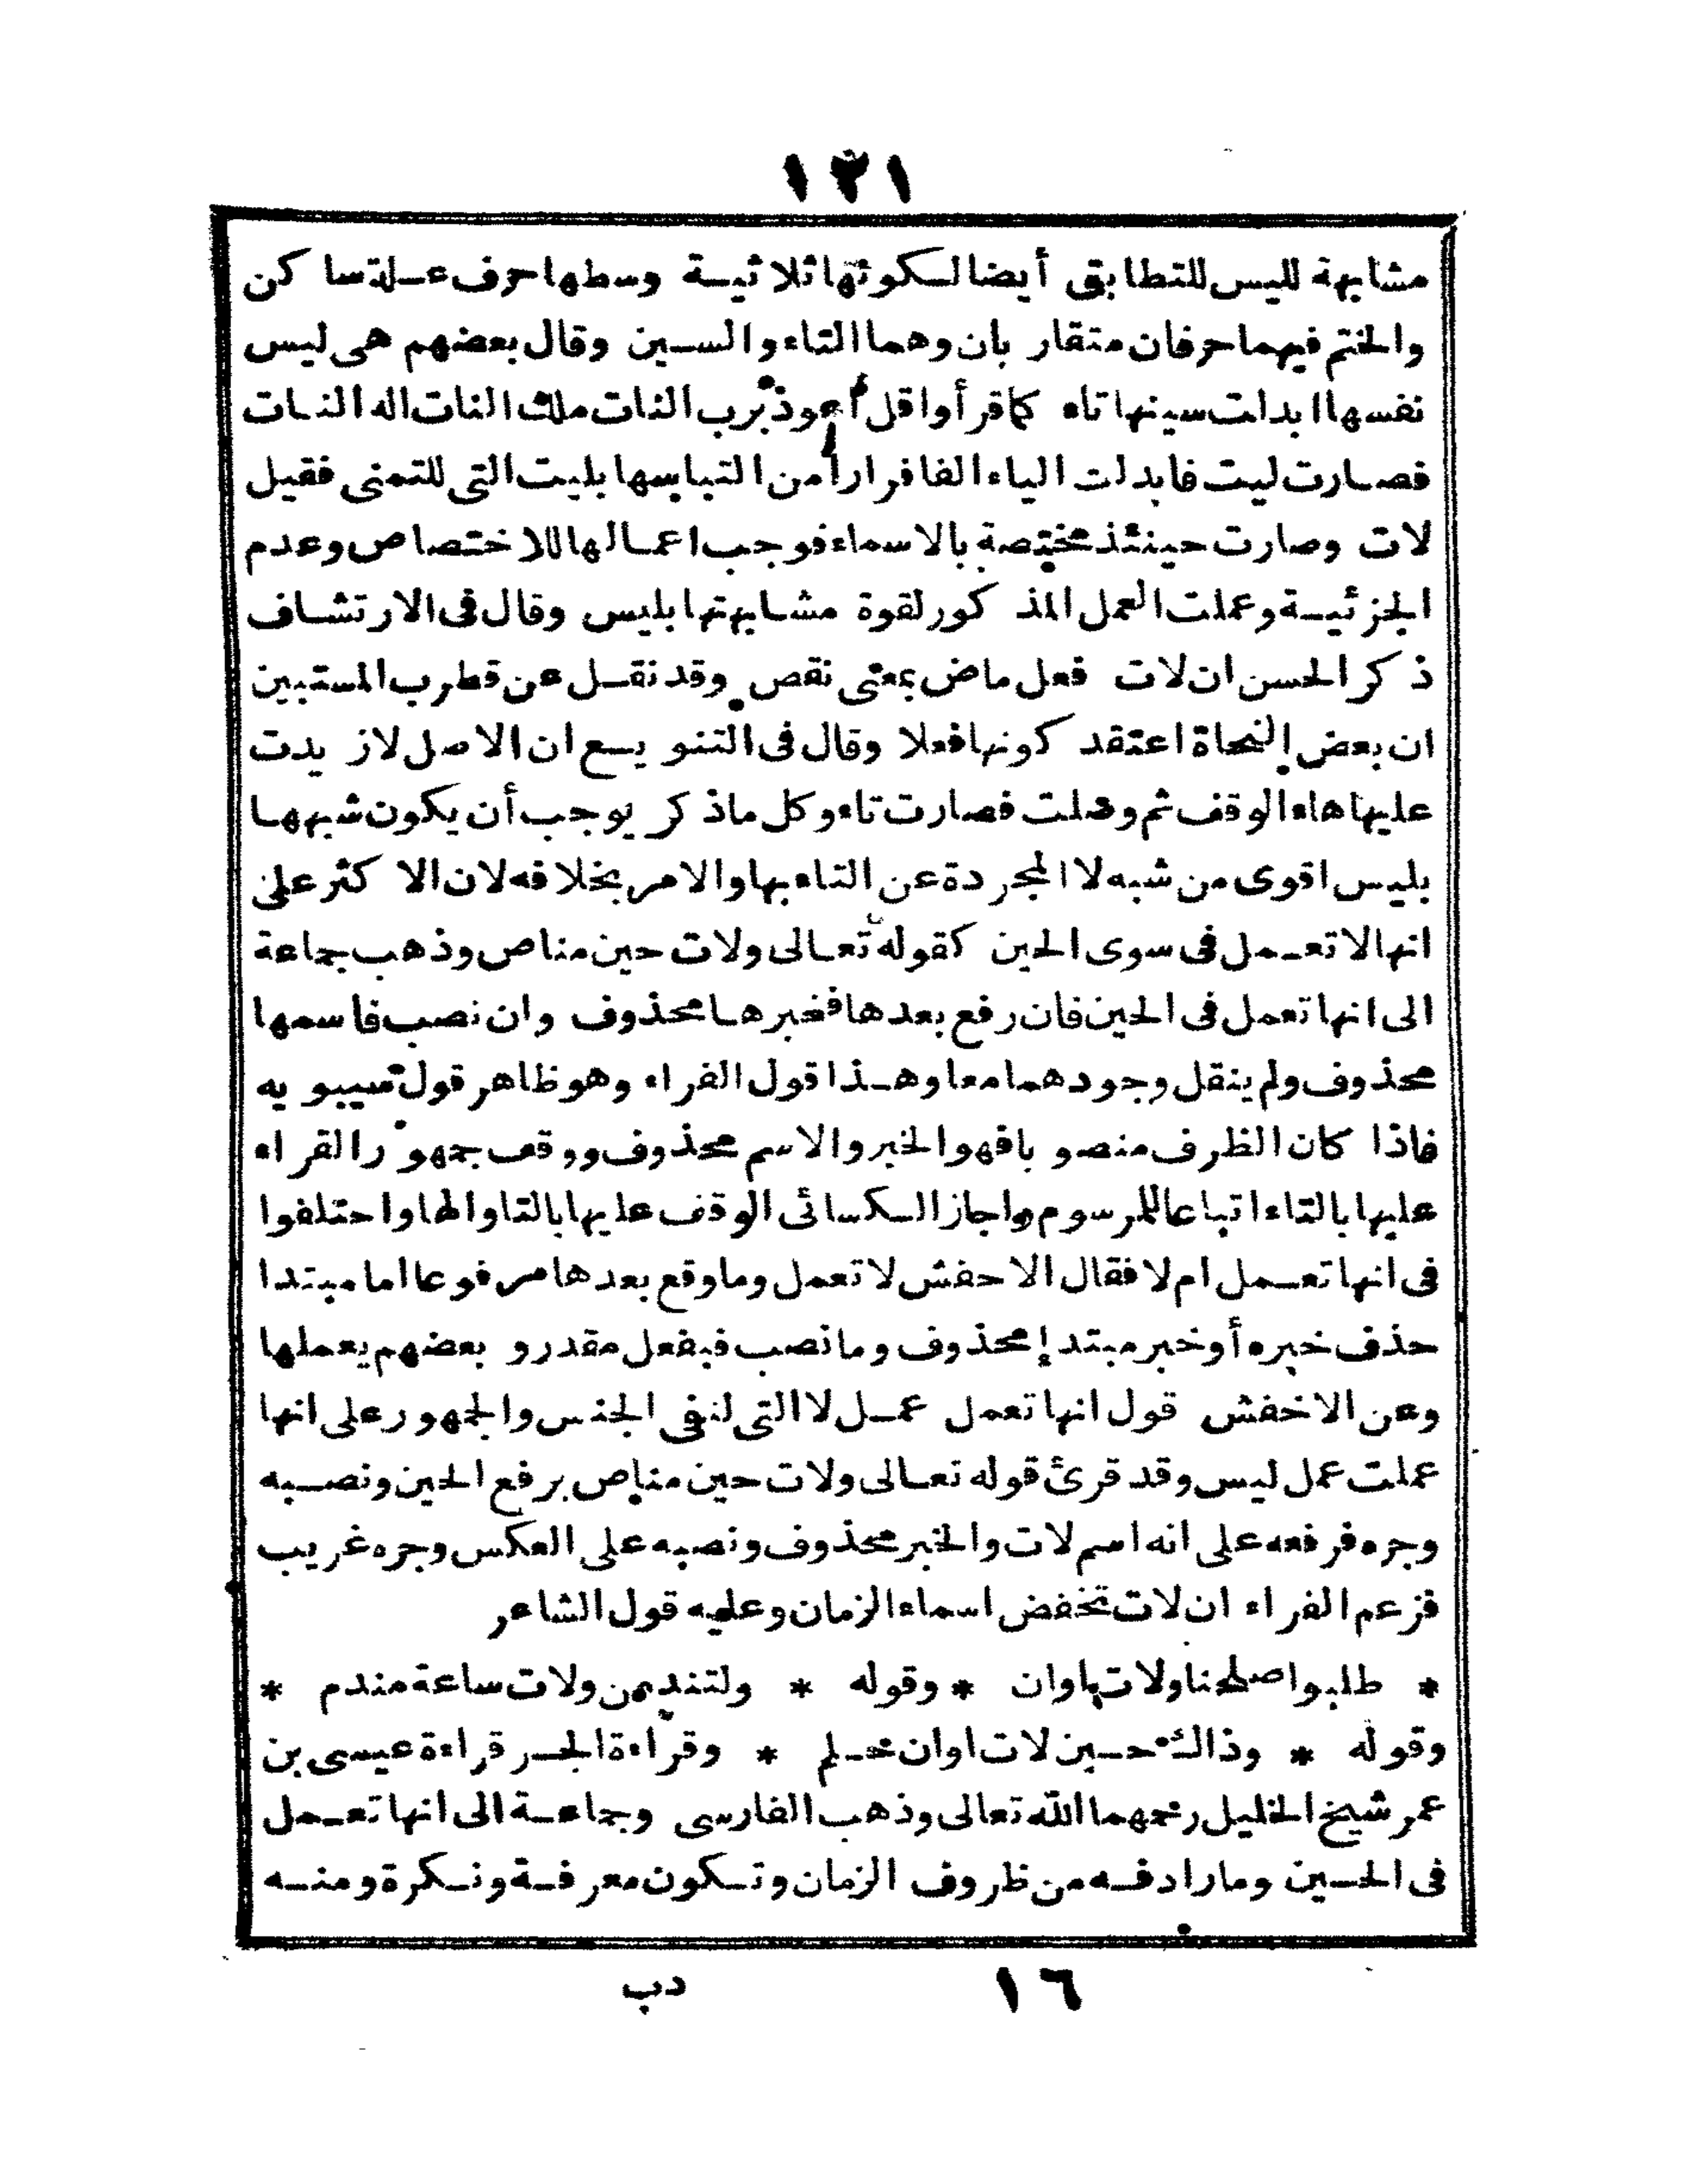 ١٢١
مشابهة لليس للتطابق أيضا لكونها ثلاثية وسطها حرف علة ساكن
والختم فيهما حرفان متقاربان وهما التاء والسين وقال بعضهم هى ليس
نفسها ابدلت سينها تاء كما قرأوا قل أعوذ برب النات ملك النات اله النات
فصارت ليت فابدلت الياء الفا فرارا من التباسها بليت التى للتمنى فقيل
لات وصارت حينئذ مختصة بالاسماء فوجب اعمالها للاختصاص وعدم
الجزئية وعملت العمل المذكور لقوة مشابهتها بليس وقال فى الارتشاف
ذكر الحسن ان لات فعل ماض بمعنى نقص وقد نقل عن قطرب المستبين
ان بعض النحاة اعتقد كونها فعلا وقال فى التنويسع ان الاصل لا زيدت
عليها هاء الوقف ثم وصلت فصارت تاء وكل ما ذكر يوجب أن يكون شبهها
بليس اقوى من شبه لا المجردة عن التاء بها والامر بخلافه لان الاكثر على
انها لا تعمل فى سوى الحين كقوله تعالى ولات حين مناص وذهب جماعة
الى انها تعمل فى الحين فان رفع بعدها فخبرها محذوف وان نصب فاسمها
محذوف ولم ينقل وجودهما معا وهذا قول الفراء وهو ظاهر قول سيبويه
فاذا كان الظرف منصوبا فهو الخبر والاسم محذوف ووقف جمهور القراء
عليها بالتاء اتباعا للمرسوم واجاز الكسائى الوقف عليها بالتا والها واحتلفوا
فى انها تعمل ام لا فقال الاحفش لا تعمل وما وقع بعدها مرفوعا اما مبتدا
حذف خبره أو خبر مبتدإ محذوف وما نصب فبفعل مقدر و بعضهم يعملها
وعن الاخفش قول انها تعمل عمل لا التى لنفى الجنس والجمهور على انها
عملت عمل ليس وقد قرئ قوله تعالى ولات حين مناص برفع الحين ونصبه
وجره فرفعه على انه اسم لات والخبر محذوف ونصبه على العكس وجره غريب
فزعم الفراء ان لات تخفض اسماء الزمان وعليه قول الشاعر
* طلبوا صلحنا ولات اوان * وقوله * ولتندمن ولات ساعة مندم *
وقوله * وذالك حين لات اوان حلم * وقراءة الجر قراءة عيسى بن
عمر شيخ الخليل رحمهما الله تعالى وذهب الفارسى وجماعة الى انها تعمل
فى الحين وما رادفه من ظروف الزمان وتكون معرفة ونكرة ومنه
١٦ دب